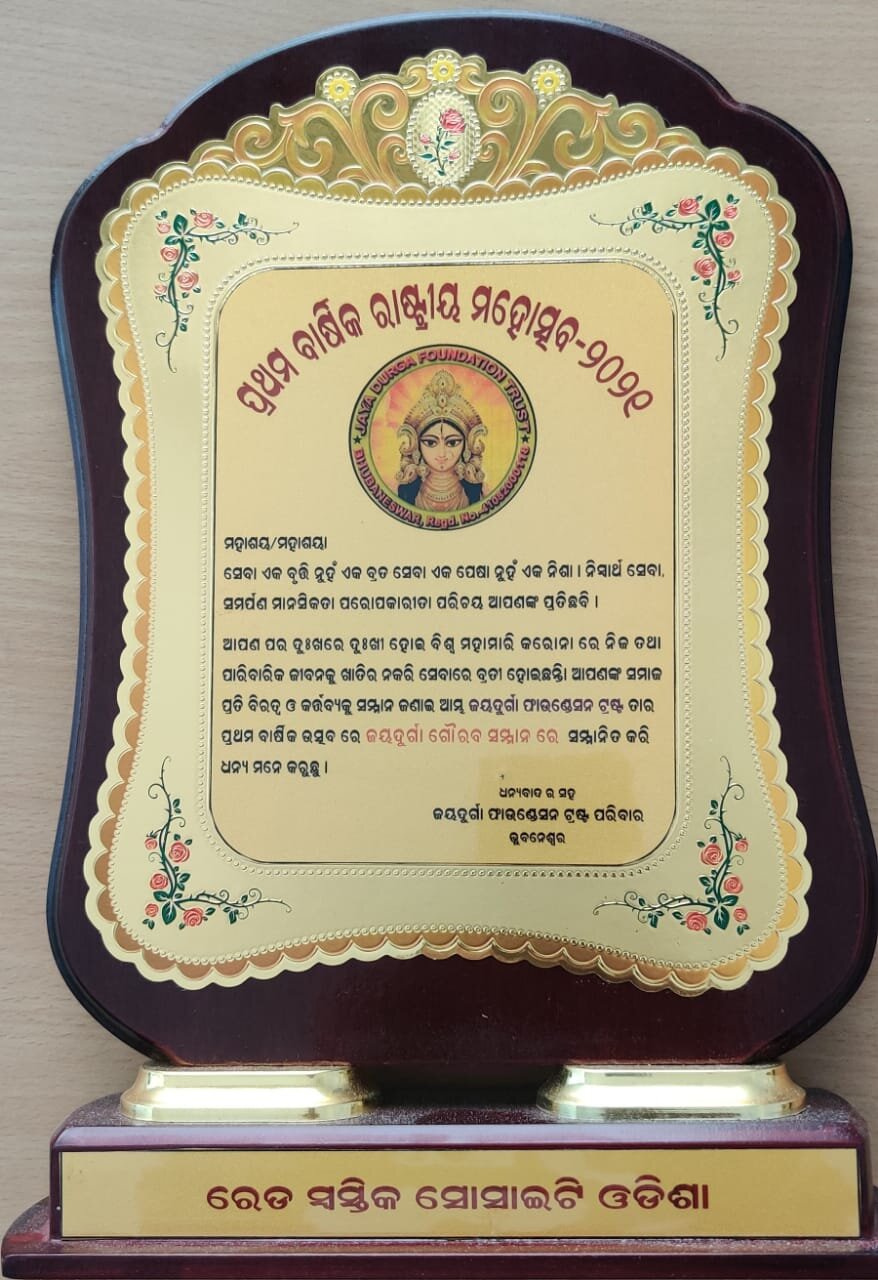 ପ୍ରଥମ ବାର୍ଷିକ ରାଷ୍ଟ୍ରୀୟ ମହୋତ୍ସବ-୨୦୨୧
★ JAYA DURGA FOUNDATION TRUST ★
BHUBANESWAR, Regd. No.-41082000118
ମହାଶୟ/ମହାଶୟା
ସେବା ଏକ ବୃତ୍ତି ନୁହଁ ଏକ ବ୍ରତ ସେବା ଏକ ପେଷା ନୁହଁ ଏକ ନିଶା । ନିସ୍ୱାର୍ଥ ସେବା,
ସମର୍ପଣ ମାନସିକତା ପରୋପକାରୀତା ପରିଚୟ ଆପଣଙ୍କ ପ୍ରତିଛବି ।
ଆପଣ ପର ଦୁଃଖରେ ଦୁଃଖୀ ହୋଇ ବିଶ୍ୱ ମହାମାରି କରୋନା ରେ ନିଜ ତଥା
ପାରିବାରିକ ଜୀବନକୁ ଖାତିର ନକରି ସେବାରେ ବ୍ରତୀ ହୋଇଛନ୍ତି। ଆପଣଙ୍କ ସମାଜ
ପ୍ରତି ବିରତ୍ୱ ଓ କର୍ତ୍ତବ୍ୟକୁ ସମ୍ମାନ ଜଣାଇ ଆମ୍ଭ ଜୟଦୁର୍ଗା ଫାଉଣ୍ଡେସନ ଟ୍ରଷ୍ଟ ତାର
ପ୍ରଥମ ବାର୍ଷିକ ଉତ୍ସବ ରେ ଜୟଦୁର୍ଗା ଗୌରବ ସମ୍ମାନ ରେ ସମ୍ମାନିତ କରି
ଧନ୍ୟ ମନେ କରୁଛୁ ।
ଧନ୍ୟବାଦ ର ସହ
ଜୟଦୁର୍ଗା ଫାଉଣ୍ଡେସନ ଟ୍ରଷ୍ଟ ପରିବାର
ଭୁବନେଶ୍ୱର
ରେଡ ସ୍ୱସ୍ତିକ ସୋସାଇଟି ଓଡିଶା